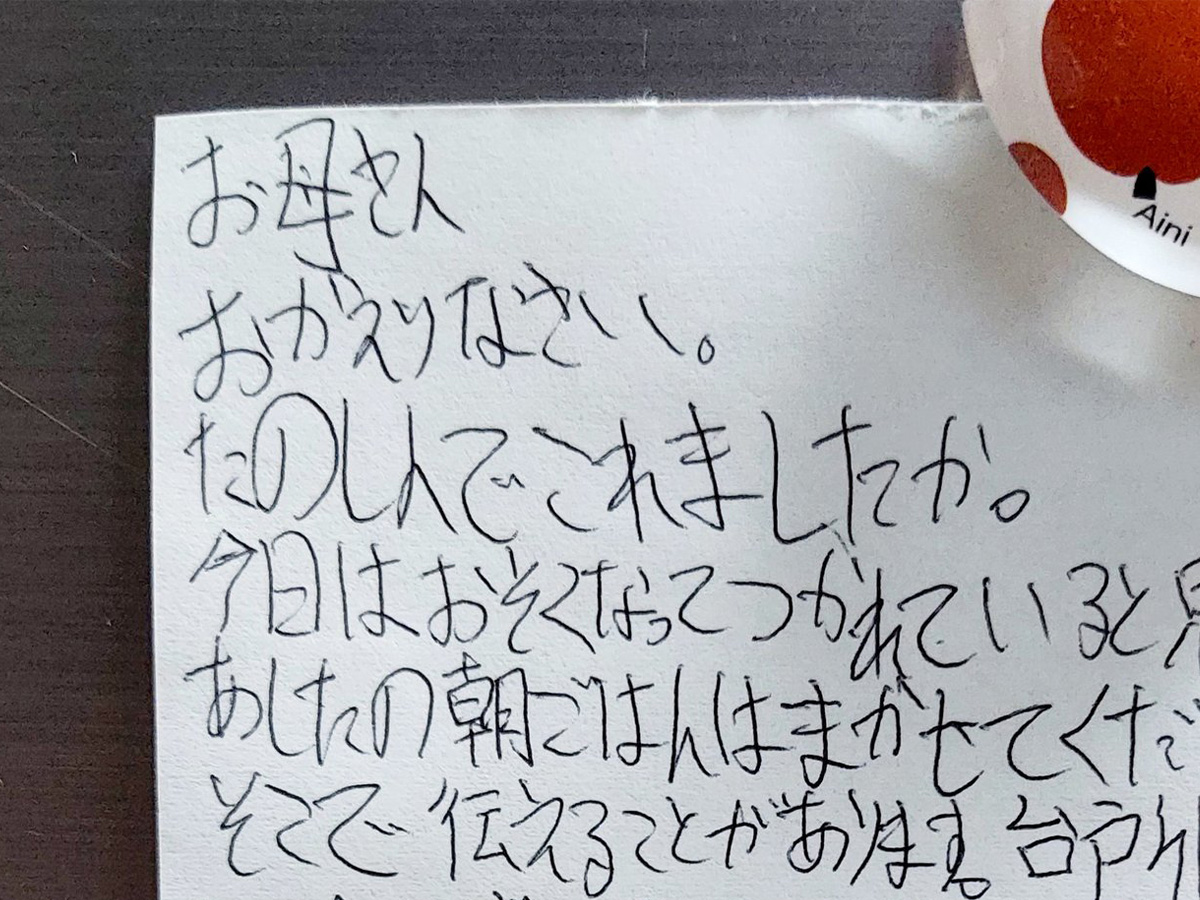 お母さん
おかえりなさい。
たのしんでこれましたか。
今日はおそくなってつかれていると
あしたの朝ごはんはまかせてくだ
そこで伝えることがあります。台所
Aini